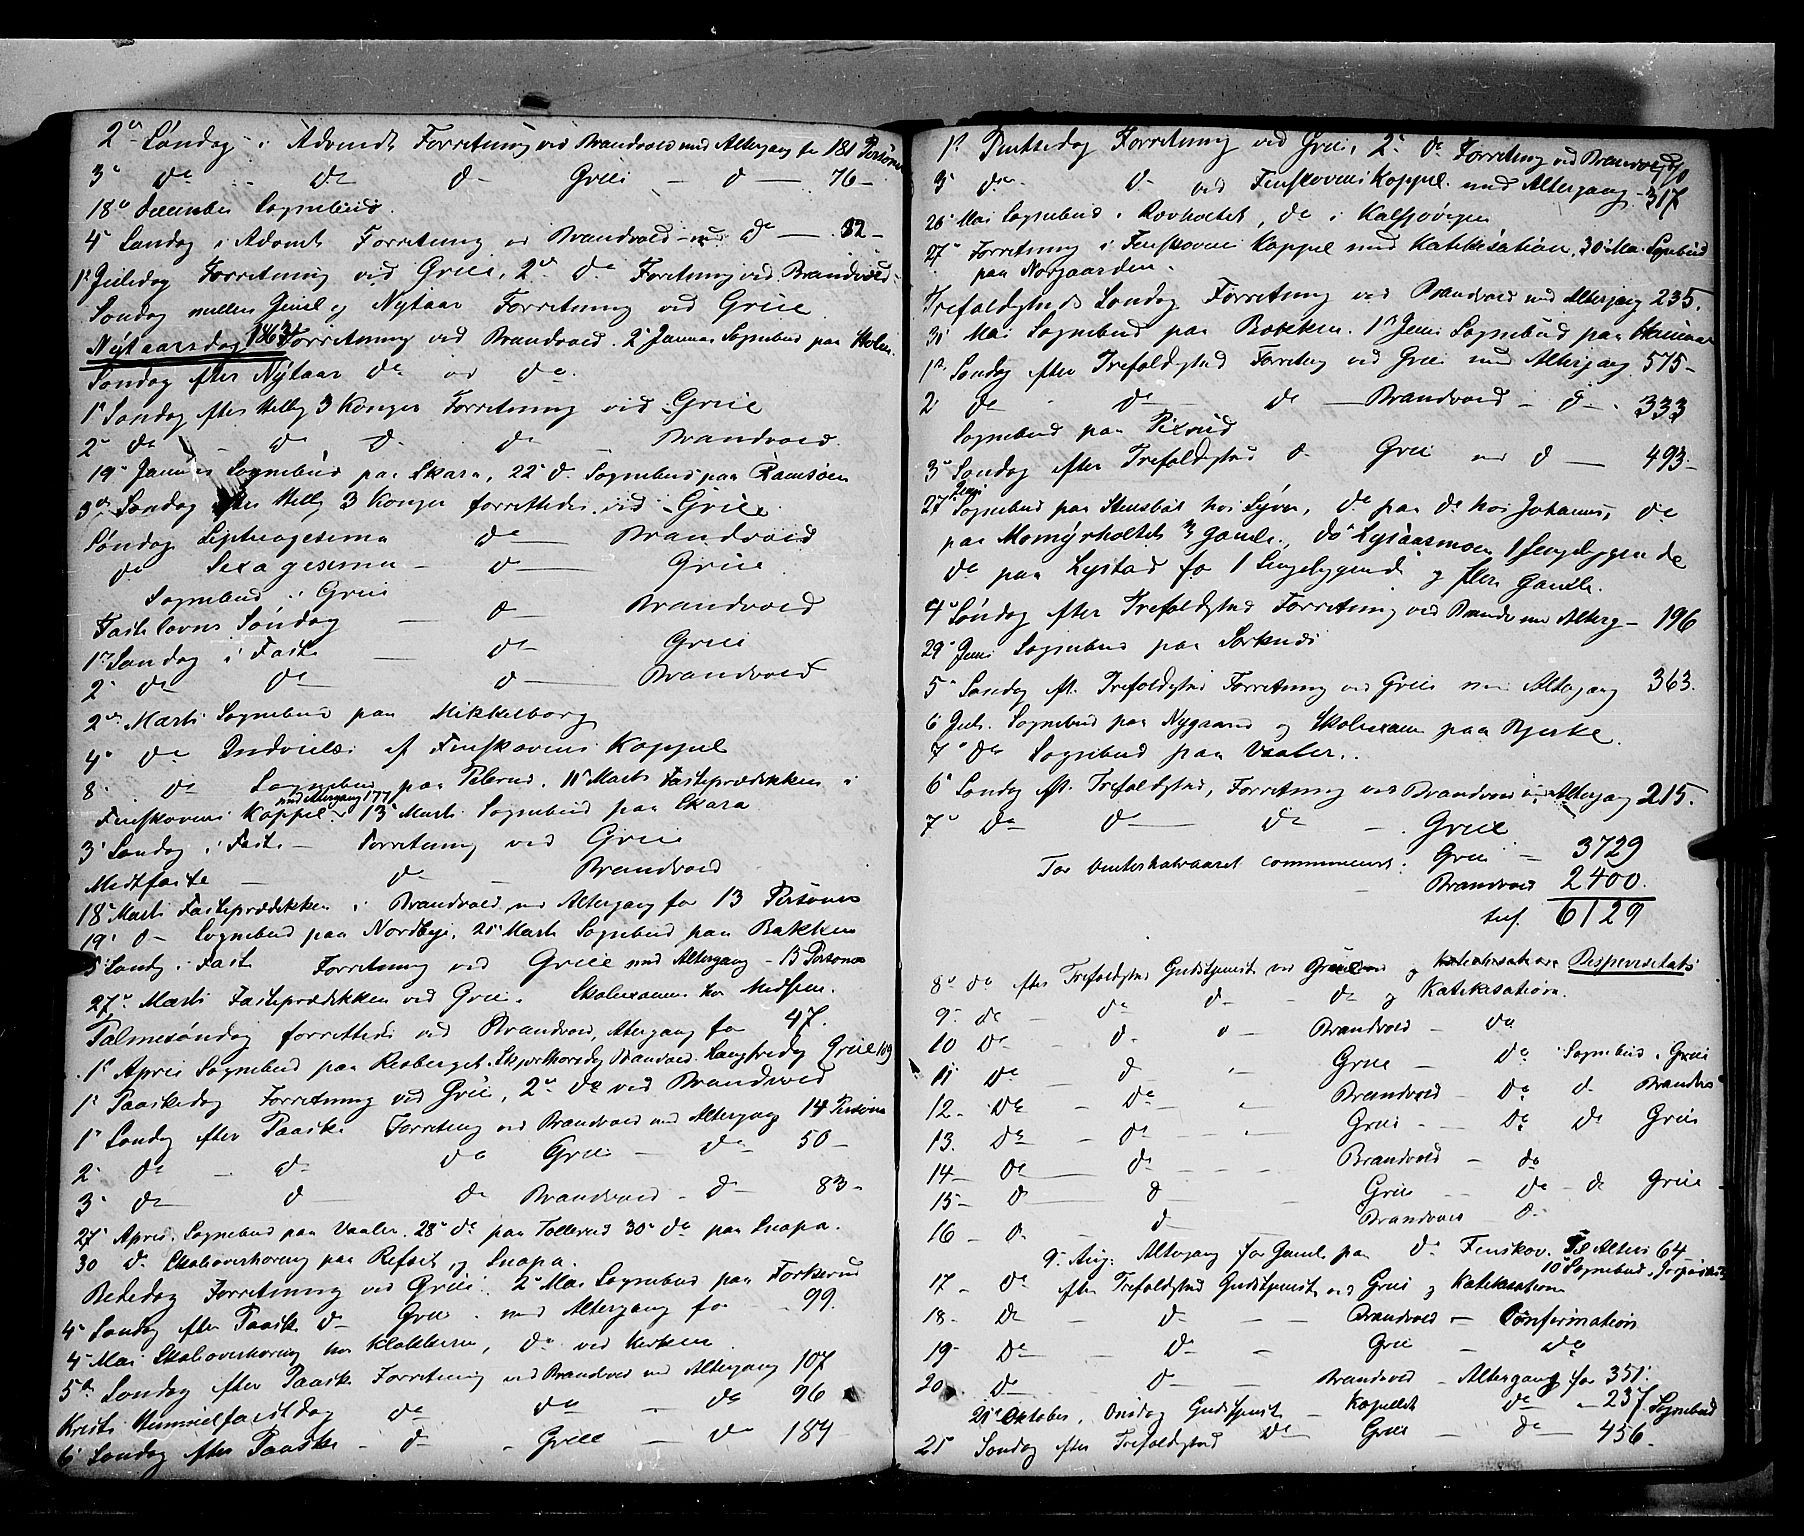 2den Søndag i Advendt Forretning ved Brandvold med Altergang for 181 Personer
3die do - do do Grue - do - 76 -
18de December Sognebud.
4de Søndag i Advendt Forretning ved Brandvold med do - 82 -
1ste Juledag Forretning ved Grue, 2den do Forretning ved Brandvold.
Søndag mellem Juul og Nytaar Forretning ved Grue
Nytaarsdag 1863 Forretning ved Brandvold. 2den Januar Sognebud paa
Søndag efter Nytaar do ved do.
1ste Søndag efter Hellig 3 Konger Forretning ved Grue
2den do - do do do - Brandvold.
19de Januar Sognebud paa Skara, 22de do Sognebud paa Ramsøen
3die Søndag efter Hellig 3 Konger forrettedes ved Grue
Søndag Septuagesima do - Brandvold
do Sexagesima - do - Grue
Sognebud i Grue
Fastelavns Søndag - do - Brandvold
1ste Søndag i Faste - do - Grue
2den do do - do - Brandvold
2den Marts Sognebud paa Mikkelborg
4de do Indvielse af Finskovens Kappel
8de do Sognebud paa Pelerud, 11te Marts Fasteprædikken i
Finskovens Kappel med Altergang 177, 13de Marts Sognebud paa Skara
3die Søndag i Faste - Forretning ved Grue
Midtfaste - do - Brandvold
18de Marts Fasteprædikken i Brandvold med Altergang for 13 Personer
19de do - Sognebud paa Nordbye, 21de Marts Sognebud paa Bakken
5te Søndag i Faste Forretning ved Grue med Altergang - 13 Personer
27de Marts Fasteprædikken ved Grue. Skoleexamen hos
Palmesøndag forrettedes ved Brandvold, Altergang for 47.
1ste April Sognebud paa Risberget. Skjærthorsdag Brandvold. Langfredag Grue 109
1ste Paaskedag Forretning ved Grue, 2den do ved Brandvold
1ste Søndag efter Paaske Forretning ved Brandvold med Altergang 14 Personer
2den do - do do Grue - do 50 -
3die do - do do Brandvold - do - 83 -
27de April Sognebud paa Vaaler. 28de do paa Tollerud 30te do paa Snapa.
30 do Skoleoverhøring paa Refset og Snapa.
Bededag Forretning ved Grue. 2den Mai Sognebud paa Forkerud
4de Søndag efter Paaske do Grue med Altergang for - 99.
4de Mai Skoleoverhøring hos Klokkeren, do ved Kirken
5te Søndag efter Paaske Forretning ved Brandvold med Altergang 107
Kristi Himmelfartsdag do do - do 96
6te Søndag efter Paaske - do - Grue - do 184
1ste Pintsedag Forretning ved Grue, 2den do Forretning ved Brandvold
3die do - do ved Finskovens Kappel med Altergang - 317
26de Mai Sognebud i Rovholtet, do i Kalsjøvegen
27de Forretning i Finskovens Kappel med Katekisation, 30te Mai Sognebud
paa Norgaarden.
Trefoldigheds Søndag Forretning ved Brandvold med Altergang 235.
31 Mai Sognebud paa Bakken. 1ste Juni Sognebud paa
1ste Søndag efter Trefoldighed Forretning ved Grue med Altergang 575 -
2den do - do - do - Brandvold - do - 333
Sognebud paa Pixrud
3die Søndag efter Trefoldighed do Grue med do - 493 -
27de Juni Sognebud paa Stensbøl hos Syver, do paa do hos Johannes, do
paa Momyrholtet 3 gamle, do Lysaarmoen 1 Sengeliggende
do paa Lystad for 1 Sengeliggende og flere Gamle.
4de Søndag efter Trefoldighed Forretning ved Brandv med Alterg - 196
29de Juni Sognebud paa Sorknæs
5te Søndag eft. Trefoldighed Forretning ved Grue med Altergang 363.
6te Juli Sognebud paa Nygaard og Skoleexamen paa Bjerke.
7de do Sognebud paa Vaaler.
6te Søndag eft. Trefoldighed, Forretning ved Brandvold med Altergang 215.
7de do do - do - Grue
For Vinterhalvaaret communicert: Grue - 3729
Brandvold 2400.
tils. 6129
8de do efter Trefoldighed Gudstjeneste ved Grue og Katekisation
9de do - do do - do og Katekisation.
10 do - do do - Brandvold - do
11 do - do - Grue - do Sognebud i Grue
12 - do - do - Brandvold - do do Brandv
13. do - do - Grue - do do Grue
14 - do - do - Brandvold - do
15 - do - do - Grue - do - do Grue
16 - do - do - Brandvold - do
9de Aug. Altergang for Gamle paa do Finskov. Til Alters 64 -
10de Sognebud i
17 - do efter Trefoldighed Gudstjeneste ved Grue og Katekisation
18 - do - do - Brandvold - Confirmation
19 - do - do - Grue - do
20 - do - do - Brandvold - Altergang for 351.
21de Oktober, Onsdag Gudstjeneste - Kapellet do - 237 Sognebud
21 Søndag efter Trefoldighed do - Grue - do - 456 -